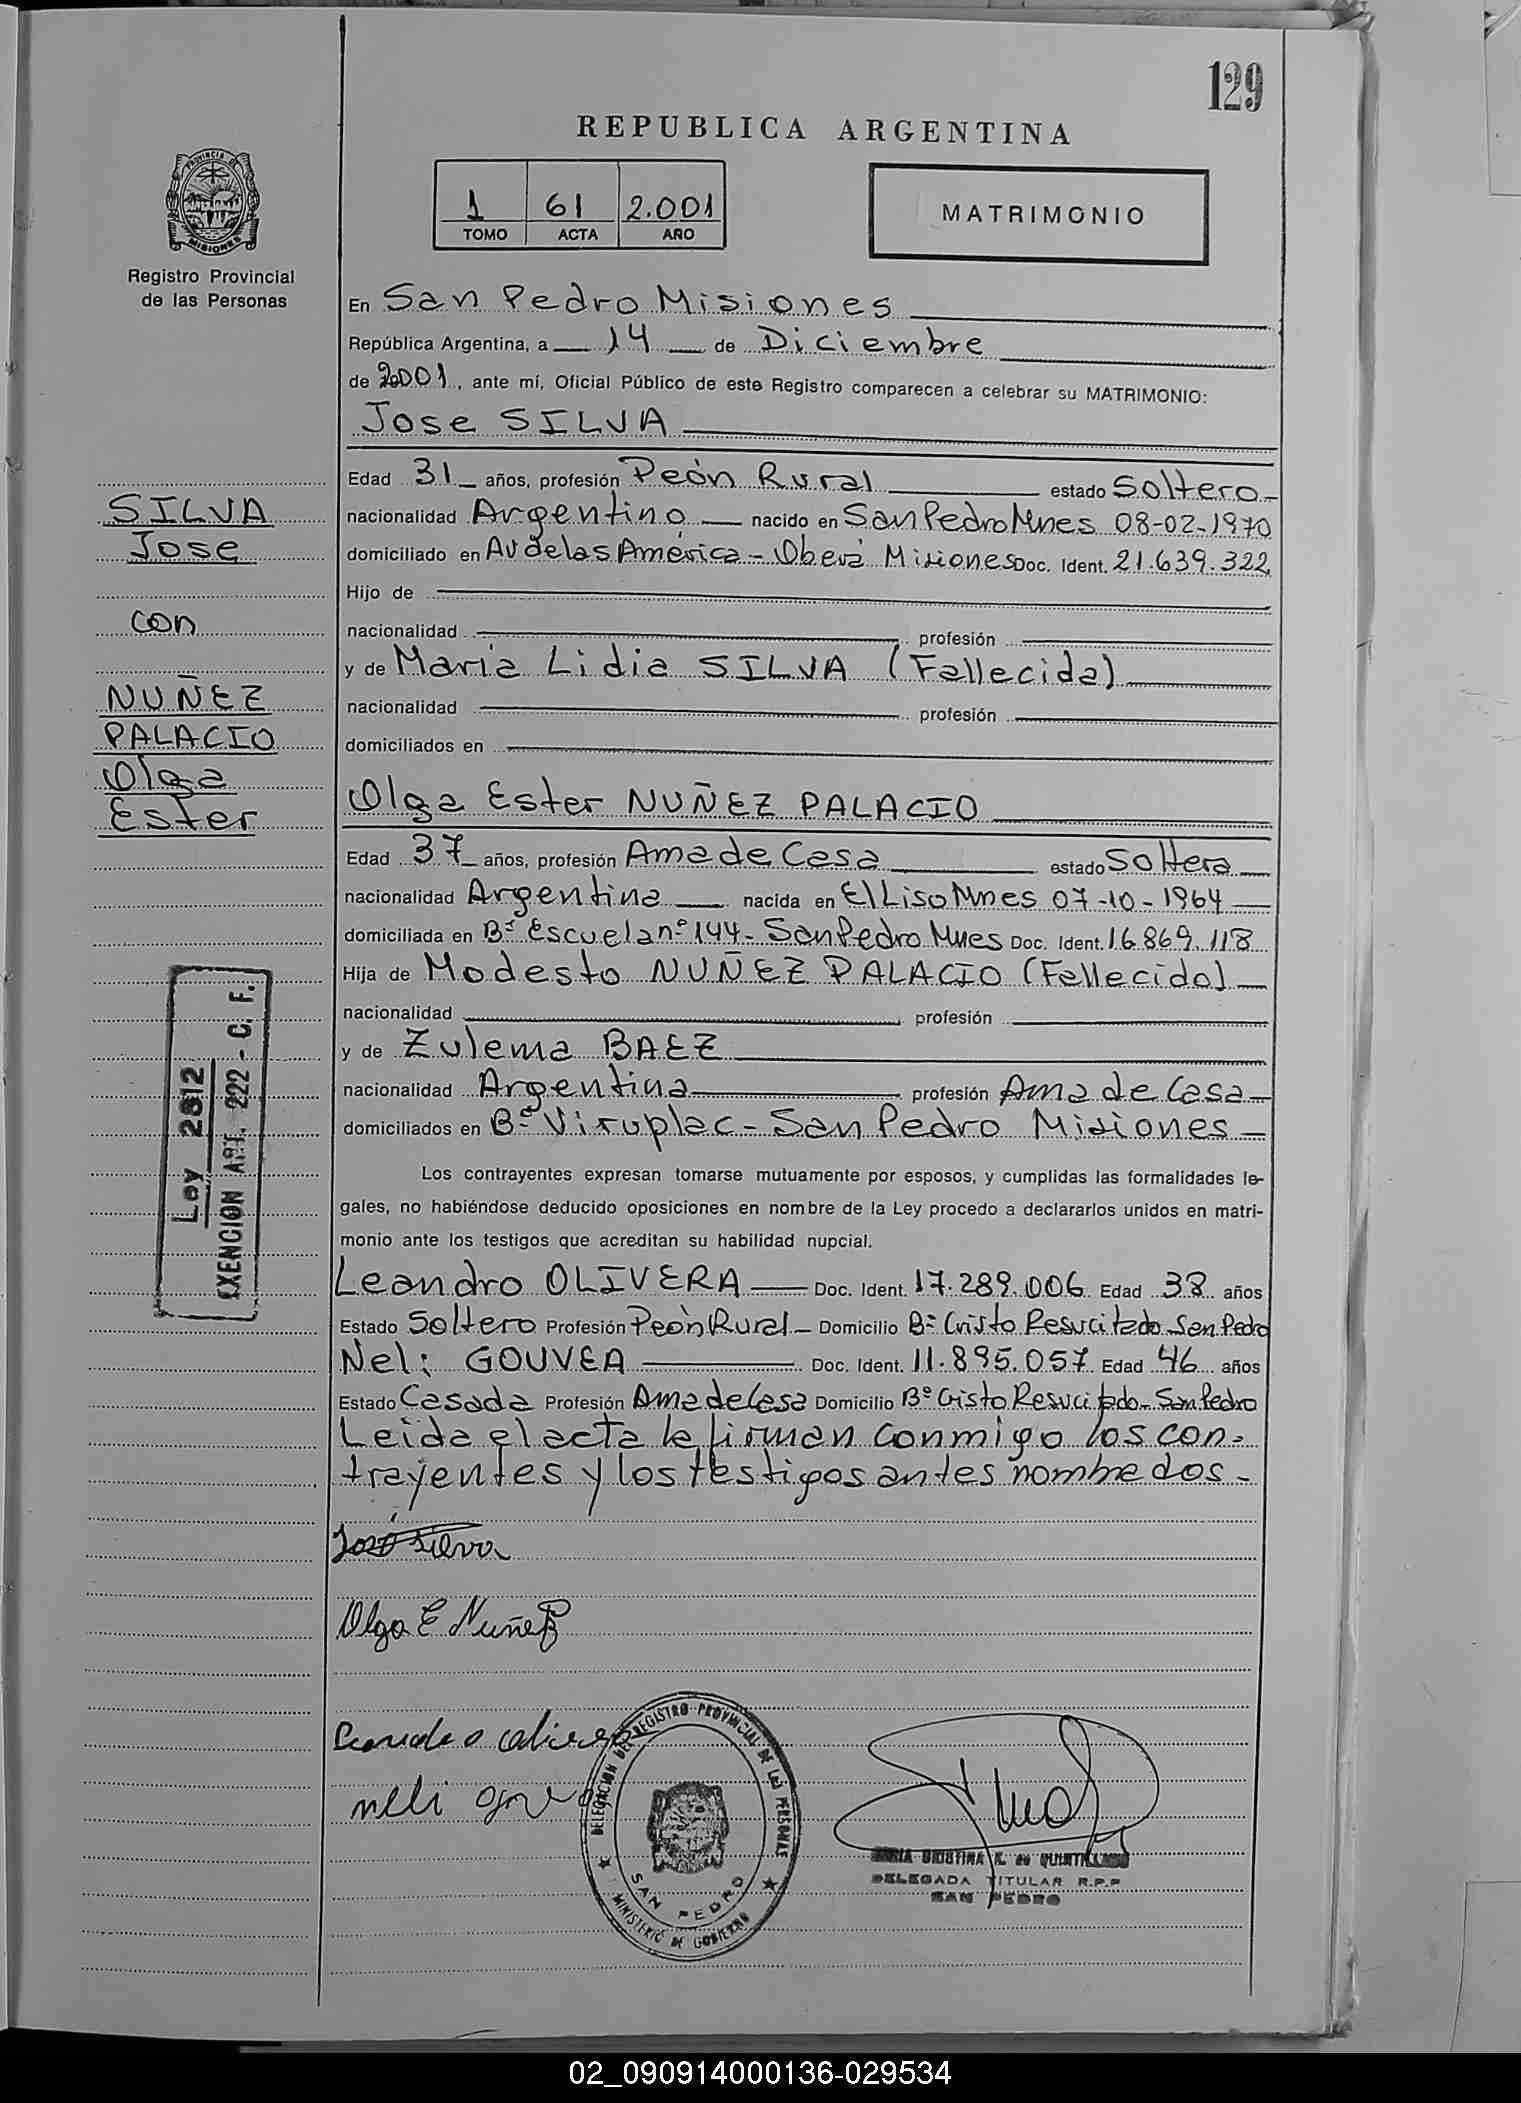 129
REPUBLICA ARGENTINA
PROVINCIA DE
MISIONES
Registro Provincial
de las Personas
1 61 2.001
TOMO ACTA AÑO
MATRIMONIO
En San Pedro Misiones
República Argentina, a 14 de Diciembre
de 2001, ante mí, Oficial Público de este Registro comparecen a celebrar su MATRIMONIO:
Jose SILVA
Edad 31 años, profesión Peón Rural estado Soltero
nacionalidad Argentino nacido en San Pedro Mnes 08-02-1970
domiciliado en Av de las América - Oberá Misiones Doc. Ident. 21.639.322
Hijo de
nacionalidad profesión
y de Maria Lidia SILVA (Fallecida)
nacionalidad profesión
domiciliados en
SILVA
Jose
con
NUÑEZ
PALACIO
Olga
Ester
Olga Ester NUÑEZ PALACIO
Edad 37 años, profesión Ama de Casa estado Soltera
nacionalidad Argentina nacida en El Liso Mnes 07-10-1964
domiciliada en Bº Escuela nº 144 - San Pedro Mnes Doc. Ident. 16.869.118
Hija de Modesto NUÑEZ PALACIO (Fallecido)
nacionalidad profesión
y de Zulema BAEZ
nacionalidad Argentina profesión Ama de Casa
domiciliados en Bº Viruplac - San Pedro Misiones
Ley 2812
EXENCION ART. 222 - C. F.
Los contrayentes expresan tomarse mutuamente por esposos, y cumplidas las formalidades le-
gales, no habiéndose deducido oposiciones en nombre de la Ley procedo a declararlos unidos en matri-
monio ante los testigos que acreditan su habilidad nupcial.
Leandro OLIVERA Doc. Ident. 17.289.006 Edad 38 años
Estado Soltero Profesión Peón Rural Domicilio Bº Cristo Resucitado San Pedro
Neli GOUVEA Doc. Ident. 11.895.057 Edad 46 años
Estado Casada Profesión Ama de Casa Domicilio Bº Cristo Resucitado - San Pedro
Leida el acta la firman conmigo los con-
trayentes y los testigos antes nombrados -
José Silva
Olga E Nuñez
DELEGACION DEL REGISTRO PROVINCIAL DE LAS PERSONAS
SAN PEDRO
MINISTERIO DE GOBIERNO
MARIA CRISTINA
DELEGADA TITULAR R.P.P
SAN PEDRO
02_090914000136-029534